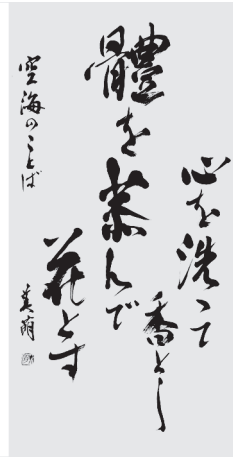 心を洗って
香とし
體を恭んで
花とす
空海のことば